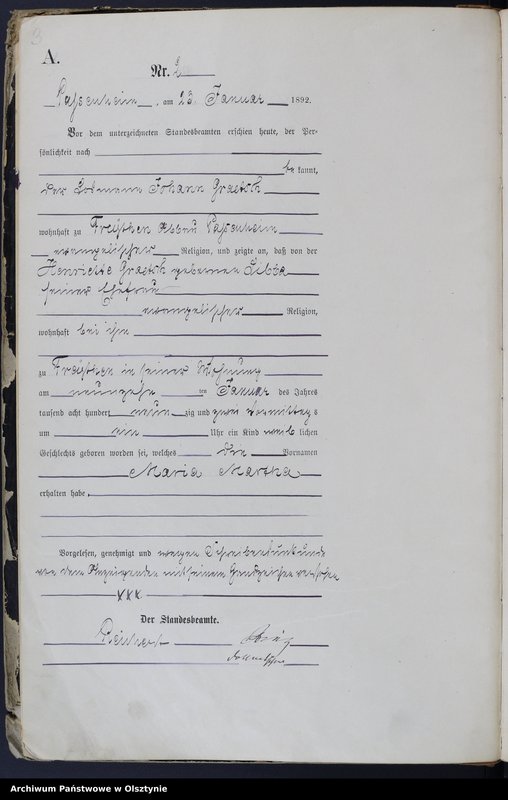 A.
Nr. 2
Passenheim, am 23. Januar 1892.
Vor dem unterzeichneten Standesbeamten erschien heute, der Per-
sönlichkeit nach
be kannt,
der Losmann Johann Graetsch
wohnhaft zu Freythen Passenheim
evangelischer Religion, und zeigte an, daß von der
Henriette Graetsch geborenen Libba
seiner Ehefrau
evangelischer Religion,
wohnhaft bei ihm
zu Freythen in seiner Wohnung
am neunzehn ten Januar des Jahres
tausend acht hundert neun zig und zwei Vormittags
um ein Uhr ein Kind weib lichen
Geschlechts geboren worden sei, welches die Vornamen
Maria Martha
erhalten habe.
Vorgelesen, genehmigt und wegen Schreibensunkunde
von dem Anzeigenden mit seinem Handzeichen versehen
XXX
Der Standesbeamte.
Reichert
Dolmetscher
Archiwum Państwowe w Olsztynie